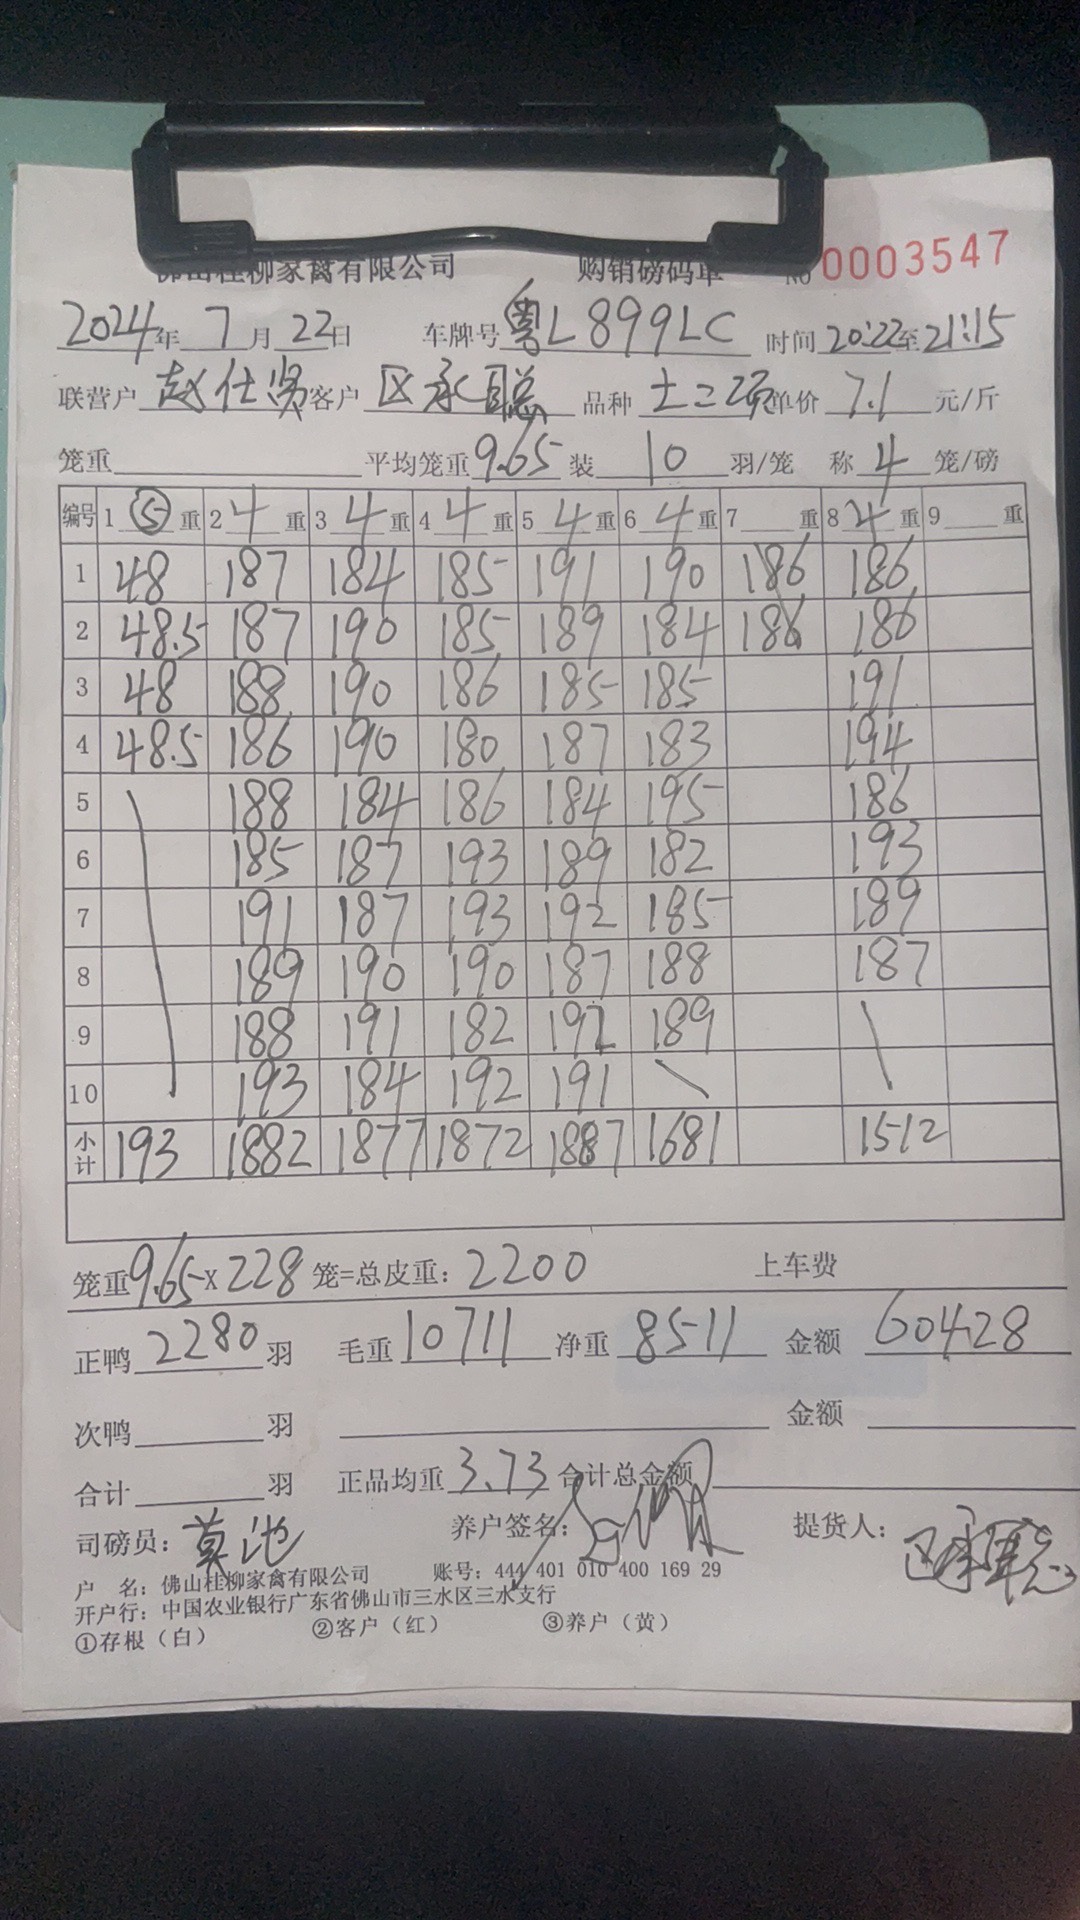 佛山桂柳家禽有限公司 购销磅码单 No 0003547
2024年 7月 22日 车牌号 粤L899LC 时间 20:22至21:15
联营户 赵仕贤 客户 区承聪 品种 土二 单价 7.1 元/斤
笼重 平均笼重 9.65 装 10 羽/笼 称 4 笼/磅
编号 1 ⑤ 重 2 4 重 3 4 重 4 4 重 5 4 重 6 4 重 7 重 8 4 重 9 重
1 48 187 184 185 191 190 186 186
2 48.5 187 190 185 189 184 186 186
3 48 188 190 186 185 185 191
4 48.5 186 190 180 187 183 194
5 188 184 186 184 195 186
6 185 187 193 189 182 193
7 191 187 193 192 185 189
8 189 190 190 187 188 187
9 188 191 182 192 189
10 193 184 192 191
小计 193 1882 1877 1872 1887 1681 1512
笼重 9.65 x 228 笼=总皮重: 2200 上车费
正鸭 2280 羽 毛重 10711 净重 8511 金额 60428
次鸭 羽 金额
合计 羽 正品均重 3.73 合计总金额
司磅员: 莫池 养户签名: 提货人:
户 名: 佛山桂柳家禽有限公司 账号: 444 401 010 400 169 29
开户行: 中国农业银行广东省佛山市三水区三水支行
①存根(白) ②客户(红) ③养户(黄)